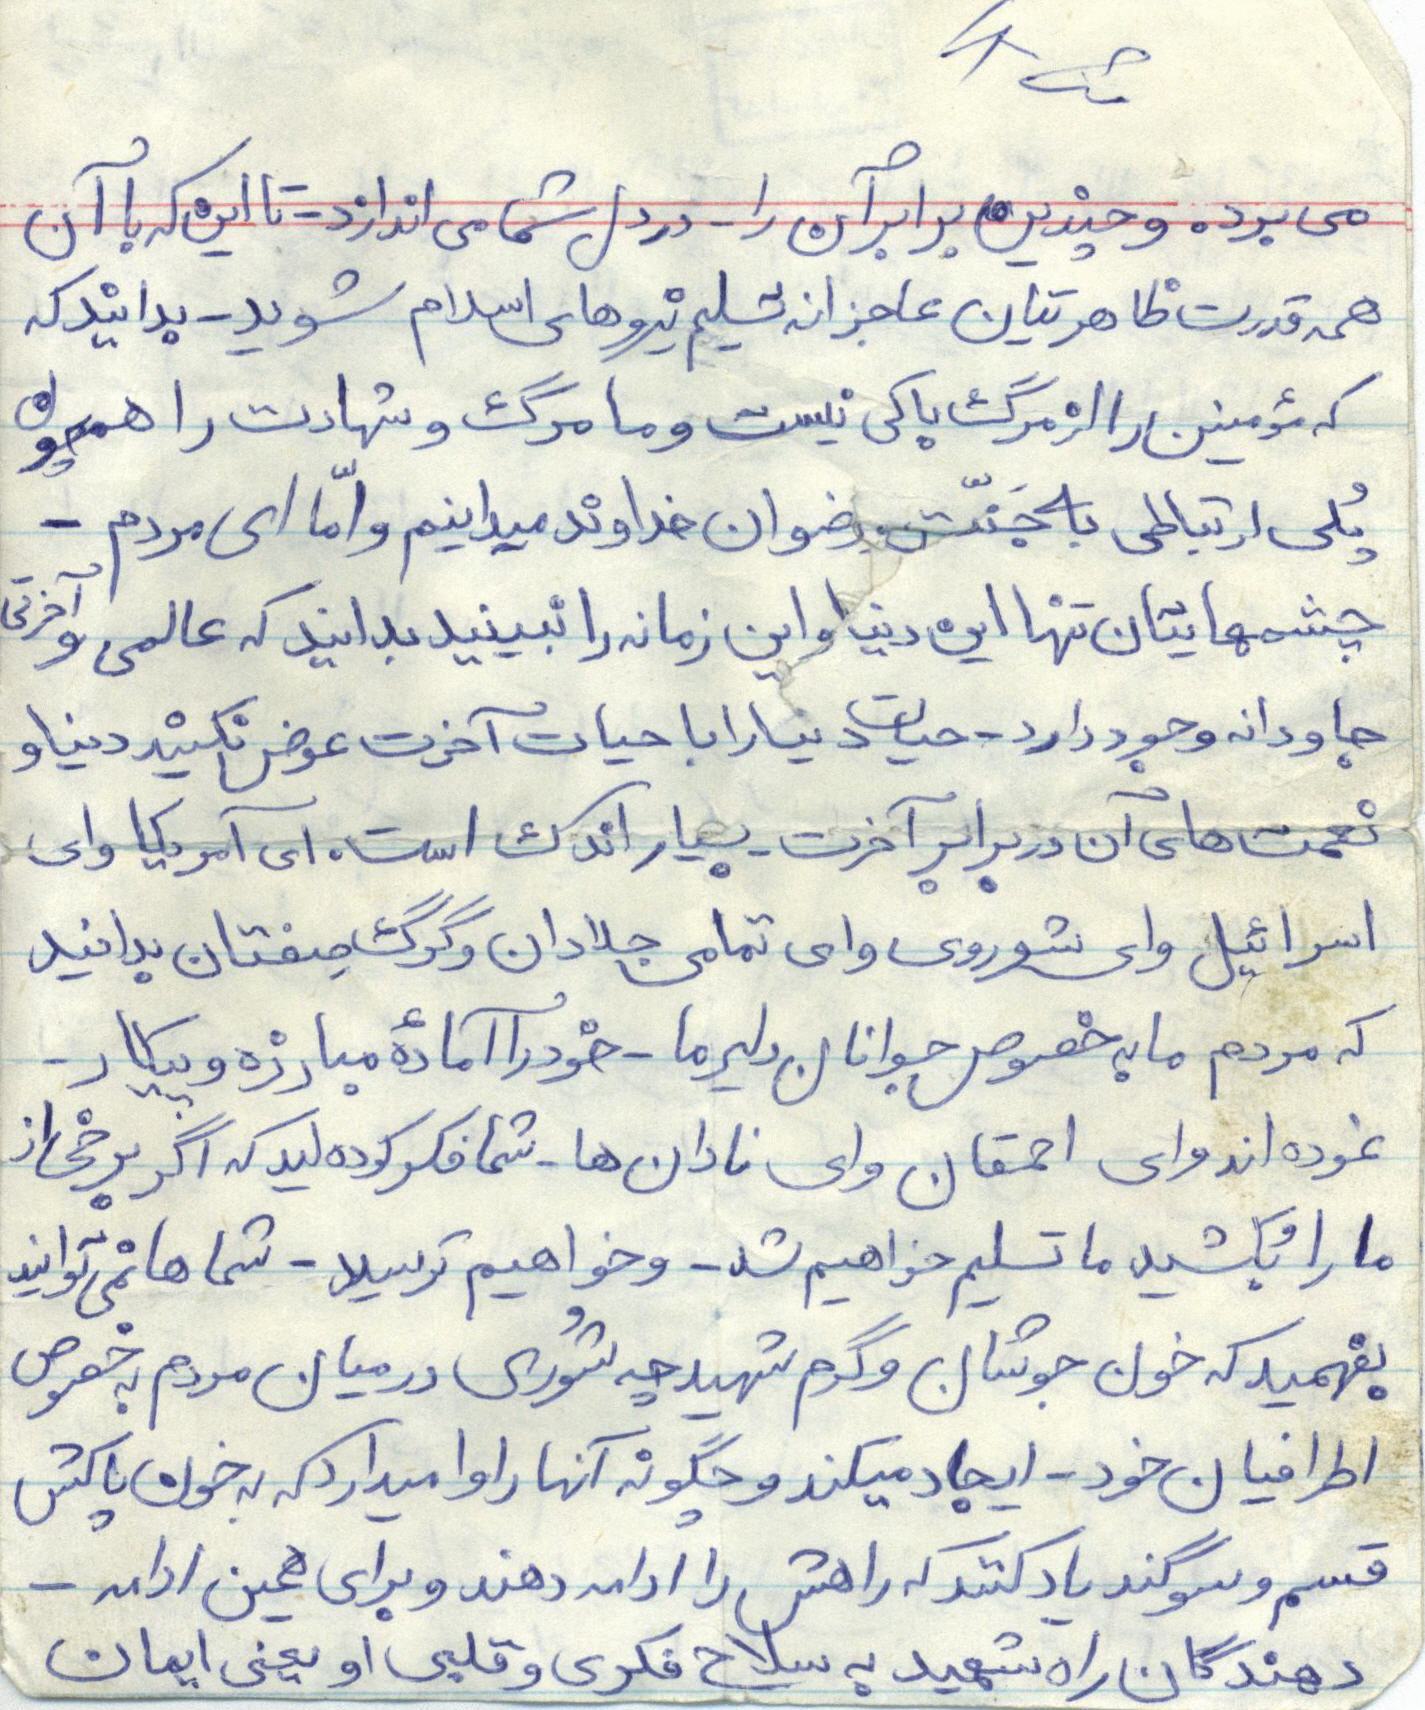 می برده و چندین برابر آن را - در دل شما می اندازد - تا این که با آن
همه قدرت ظاهریتان عاجزانه تسلیم نیروهای اسلام شوید - بدانید که
که مؤمنین را از مرگ باکی نیست و ما مرگ و شهادت را همچون
پُلی ارتباطی به جَنّت و رضوان خداوند میدانیم و امّا ای مردم -
چشمهایتان تنها این دنیا و این زمانه را نبینید بدانید که عالمی و آخرتی
جاودانه وجود دارد - حیات دنیا را با حیات آخرت عوض نکنید دنیا و
نعمت های آن در برابر آخرت - بسیار اندک است. ای آمریکا و ای
اسرائیل و ای شوروی و ای تمامی جلادان و گرگ صفتان بدانید
که مردم ما به خصوص جوانان دلیر ما - خود را آمادهٔ مبارزه و پیکار -
نموده اند و ای احمقان و ای نادان ها - شما فکر کرده اید که اگر برخی از
ما را بُکشید ما تسلیم خواهیم شد - و خواهیم ترسید - شماها نمی توانید
بفهمید که خون جوشان و گرم شهید چه شُوری در میان مردم به خصوص
اطرافیان خود - ایجاد میکند و چگونه آنها را وا میدارد که به خون پاکش
قسم و سوگند یاد کنند که راهش را ادامه دهند و برای همین ادامه -
دهندگان راه شهید به سلاح فکری و قلبی او یعنی ایمان